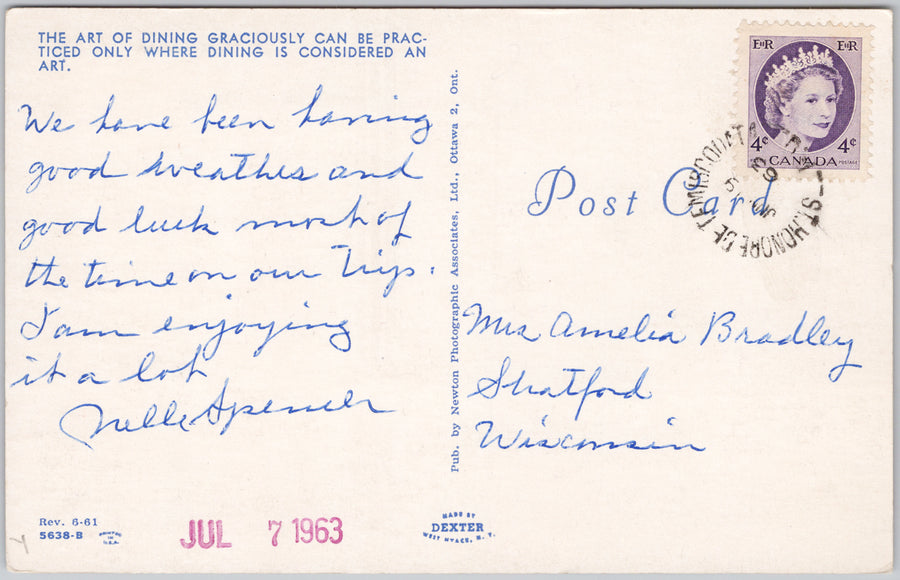 THE ART OF DINING GRACIOUSLY CAN BE PRAC-
TICED ONLY WHERE DINING IS CONSIDERED AN
ART.
We have been having
good weather and
good luck most of
the time on our Trips.
I am enjoying
it a lot
Nelle Spencer
Rev. 6-61
5638-B
PRINTED IN U.S.A.
JUL 7 1963
Pub. by Newton Photographic Associates, Ltd., Ottawa 2, Ont.
MADE BY
DEXTER
WEST NYACK, N. Y.
EIIR EIIR
4¢ 4¢
CANADA POSTAGE
ST. HONORE DE TEMISCOUATA
Post Card
Mrs Amelia Bradley
Stratford
Wisconsin